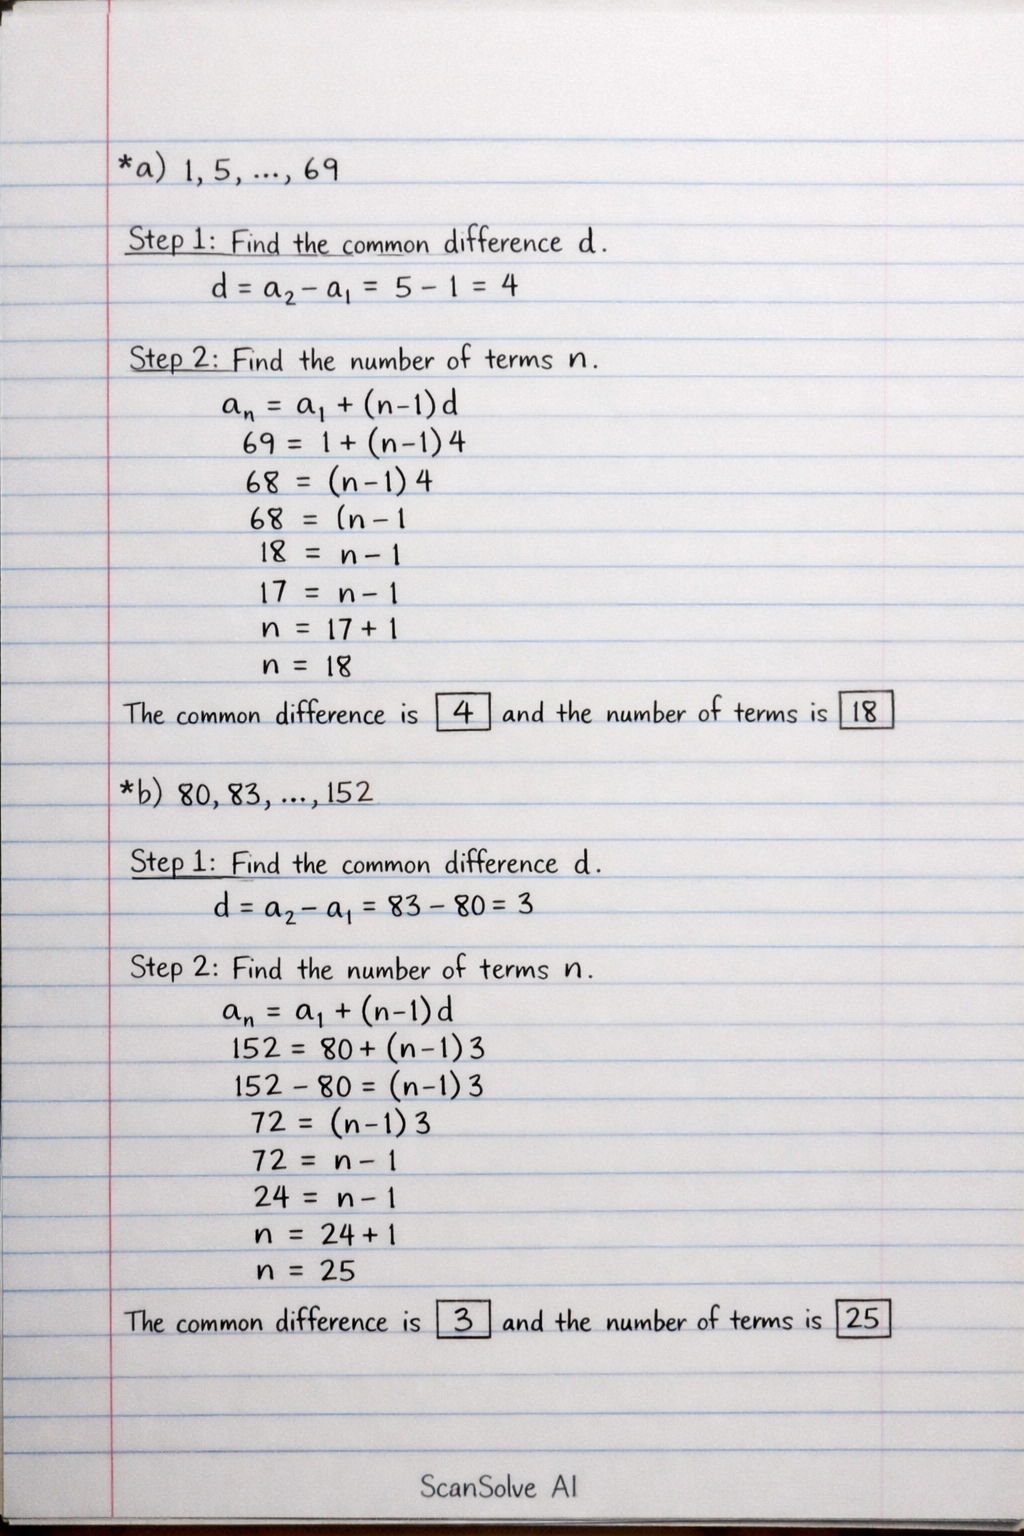 *a) 1, 5, ..., 69
Step 1: Find the common difference d.
d = a₂ − a₁ = 5 − 1 = 4
Step 2: Find the number of terms n.
aₙ = a₁ + (n−1)d
69 = 1 + (n−1)4
68 = (n−1)4
68 = (n−1
18 = n−1
17 = n−1
n = 17+1
n = 18
The common difference is 4 and the number of terms is 18
*b) 80, 83, ..., 152
Step 1: Find the common difference d.
d = a₂ − a₁ = 83 − 80 = 3
Step 2: Find the number of terms n.
aₙ = a₁ + (n−1)d
152 = 80 + (n−1)3
152 − 80 = (n−1)3
72 = (n−1)3
72 = n−1
24 = n−1
n = 24+1
n = 25
The common difference is 3 and the number of terms is 25
ScanSolve AI